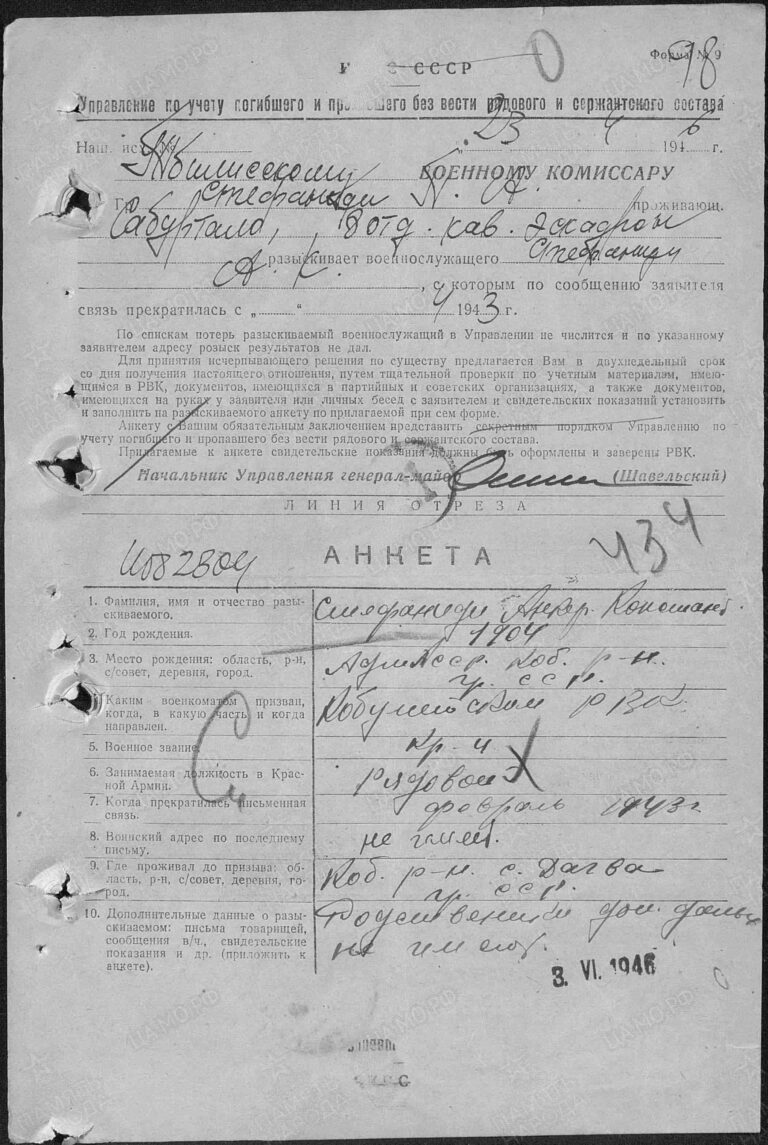 Форма № 9
98
0
СССР
Управление по учету погибшего и пропавшего без вести рядового и сержантского состава
Наш. исх. №
"23" 4 1946 г.
Тбилисскому ВОЕННОМУ КОМИССАРУ
Гр. Стефаниди Н. А. проживающ.
Сабуртало, 8 отд. кав. эскадрон
разыскивает военнослужащего Стефаниди
А. К. , с которым по сообщению заявителя
связь прекратилась с „ “ 4 1943 г.
По спискам потерь разыскиваемый военнослужащий в Управлении не числится и по указанному
заявителем адресу розыск результатов не дал.
Для принятия исчерпывающего решения по существу предлагается Вам в двухнедельный срок
со дня получения настоящего отношения, путем тщательной проверки по учетным материалам, имею-
щимся в РВК, документов, имеющихся в партийных и советских организациях, а также документов,
имеющихся на руках у заявителя или личных бесед с заявителем и свидетельских показаний установить
и заполнить на разыскиваемого анкету по прилагаемой при сем форме.
Анкету с Вашим обязательным заключением представить секретным порядком Управлению по
учету погибшего и пропавшего без вести рядового и сержантского состава.
Прилагаемые к анкете свидетельские показания должны быть оформлены и заверены РВК.
Начальник Управления генерал-майор (Шавельский)
ЛИНИЯ ОТРЕЗА
434
АНКЕТА
1. Фамилия, имя и отчество разы-
скиваемого.
Стефаниди Анкор. Констант.
2. Год рождения.
1904
3. Место рождения: область, р-н,
с/совет, деревня, город.
Адж АССР. Коб. р-н.
гр. ССР.
4. Каким военкоматом призван,
когда, в какую часть и когда
направлен.
Кобулетским РВК.
5. Военное звание
Кр-ц
6. Занимаемая должность в Крас-
ной Армии.
Рядовой
7. Когда прекратилась письменная
связь.
февраль 1943 г
8. Воинский адрес по последнему
письму.
не имел.
9. Где проживал до призыва: об-
ласть, р-н, с/совет, деревня, го-
род.
Коб. р-н. с. Дагва
гр. ССР.
10. Дополнительные данные о разы-
скиваемом: письма товарищей,
сообщения в/ч., свидетельские
показания и др. (приложить к
анкете).
Родственники доп. даных
не имеют.
3. VI. 1946